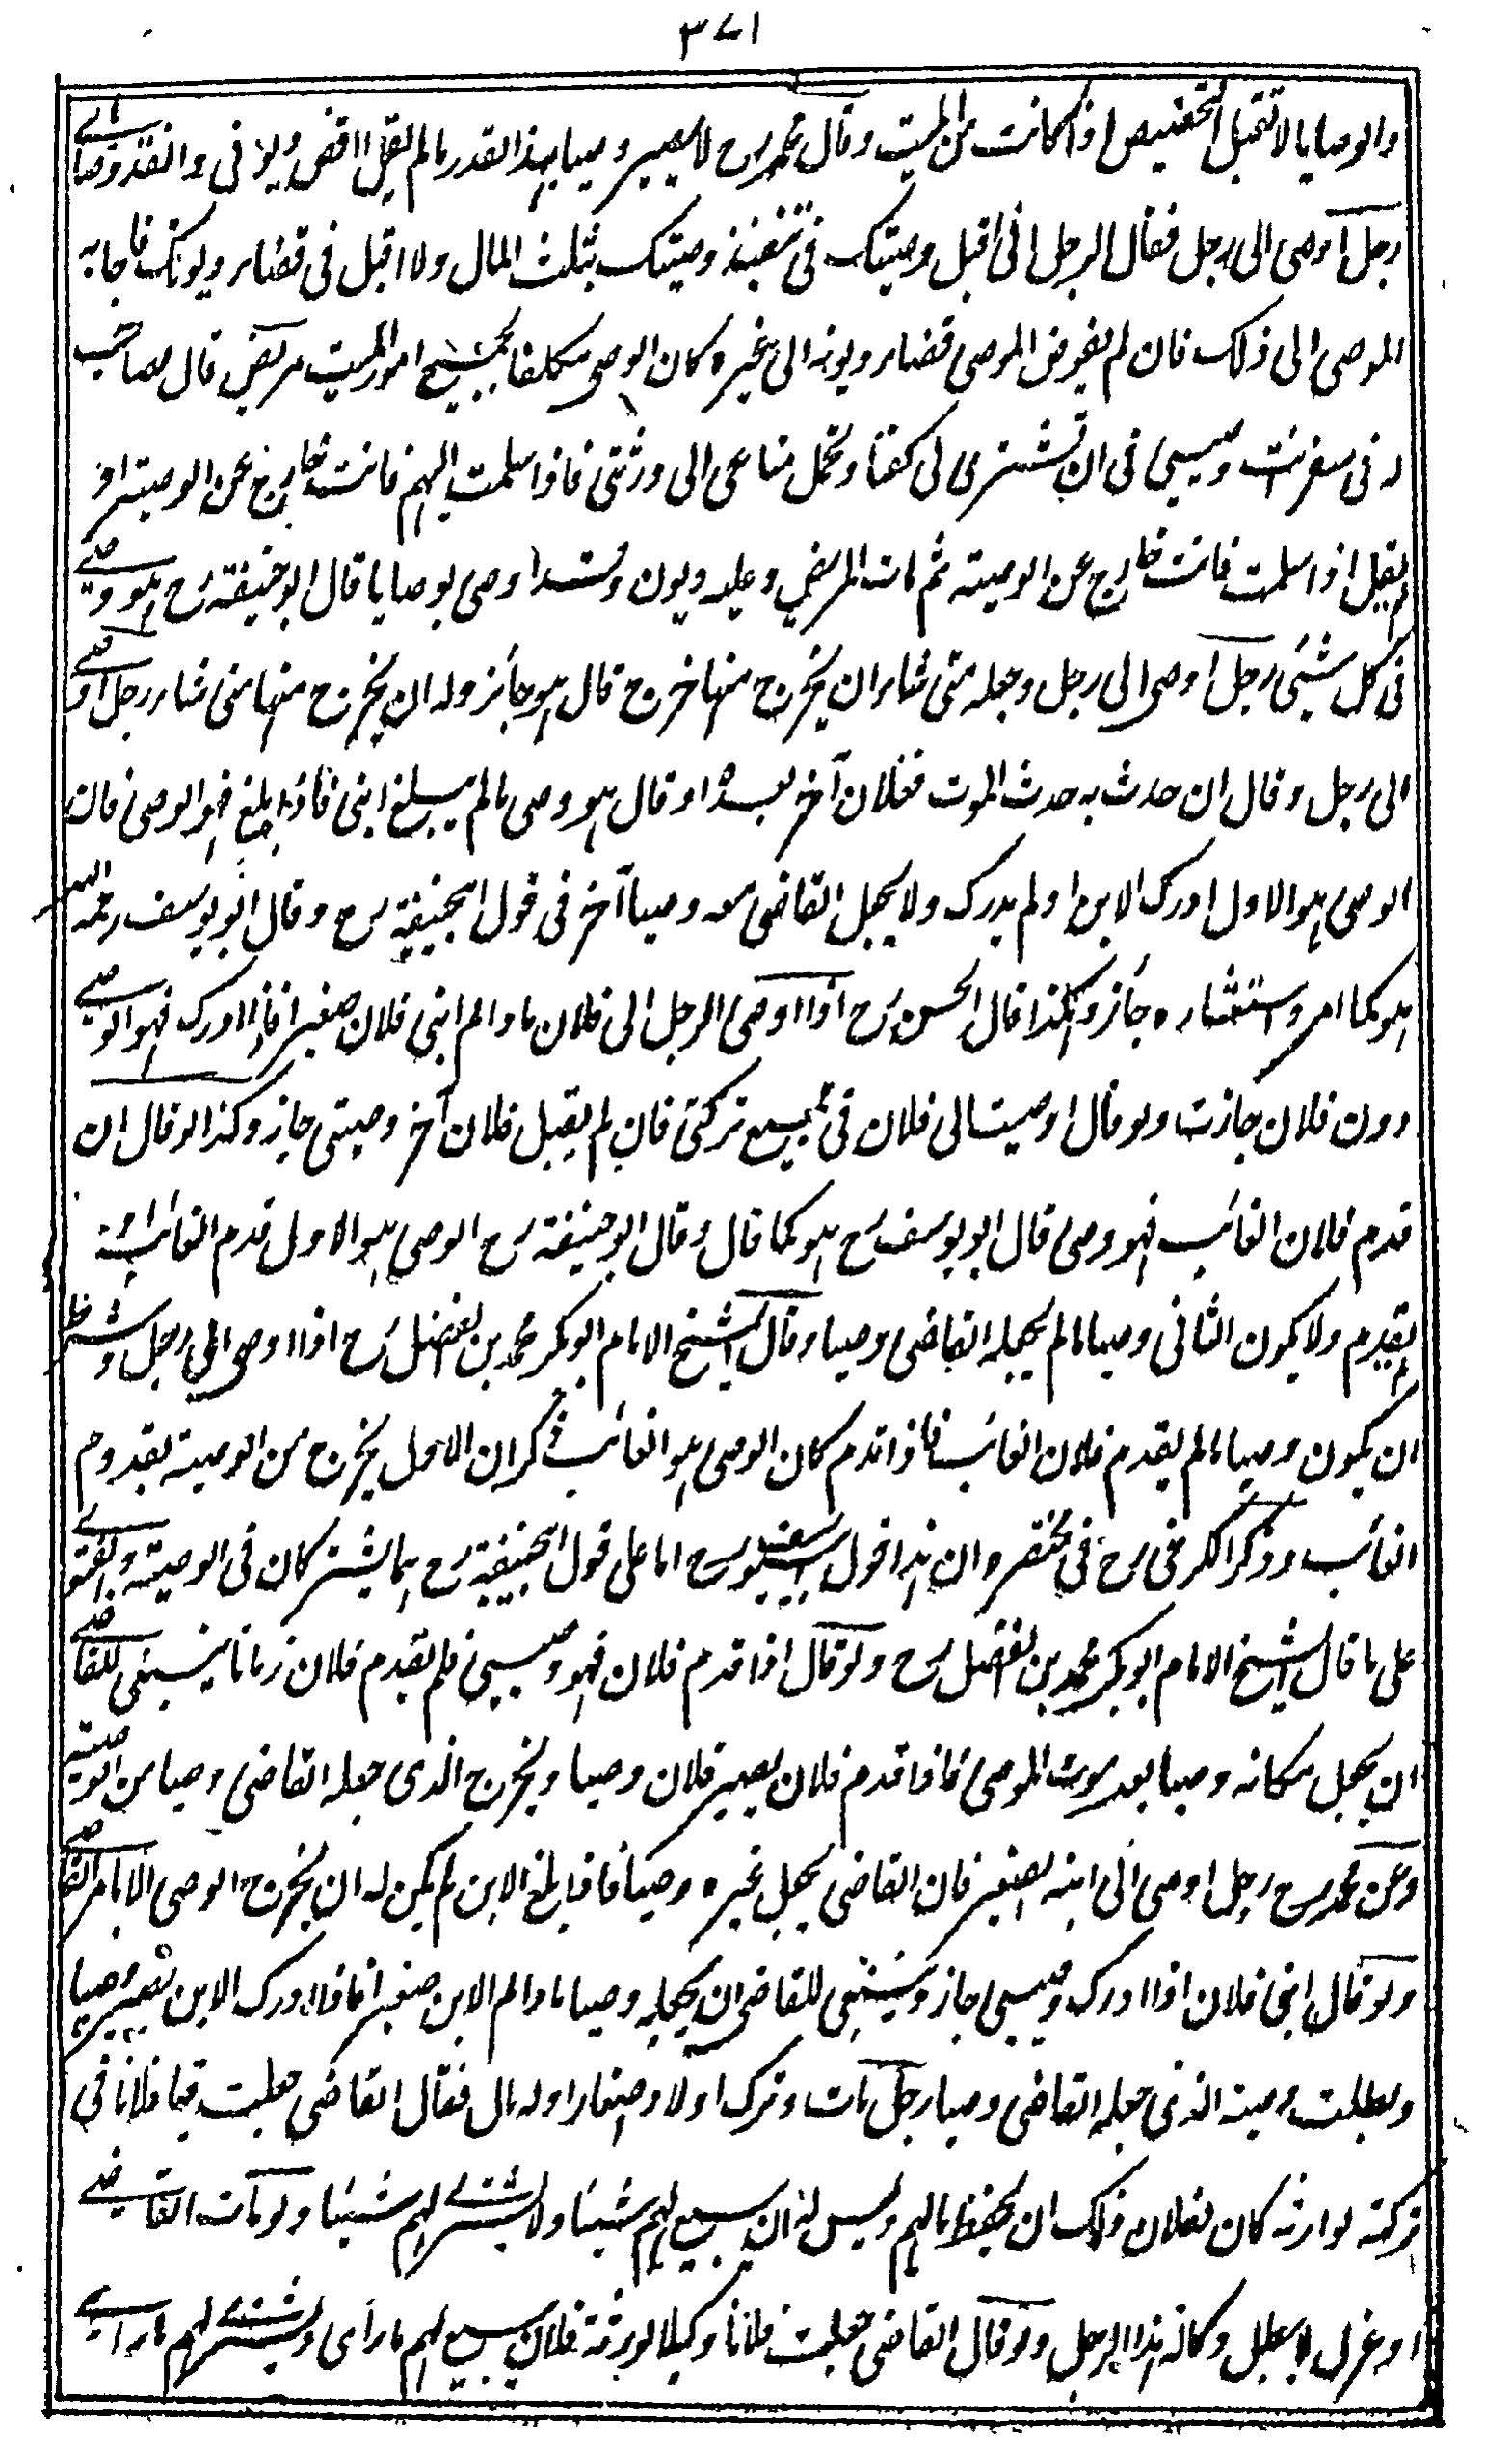 ٣٧١
والوصايا لا تقبل التخصيص اذا كانت من الميت وقال محمد رح لا يصير وصيا بهذا القدر ما لم يقل اقض ديونى وانفذ وصاياى
رجل اوصى الى رجل فقال الرجل انى اقبل وصيتك فى تنفيذ وصيتك بثلث المال ولا اقبل فى قضاء ديونك فاجابه
الموصى الى ذلك فان لم يفوض الموصى قضاء ديونه الى غيره كان الوصى مكلفا بجميع امور الميت مريض قال لصاحب
له فى سفر انت وصيى فى ان تشترى لى كفنا وتحمل متاعى الى ورثتى فاذا سلمت اليهم فانت خارج عن الوصية او
لم يقل اذا سلمت فانت خارج عن الوصية ثم مات المريض وعليه ديون وقد اوصى بوصايا قال ابو حنيفة رح هو وصى
فى كل شيئ رجل اوصى الى رجل وجعله متى شاء ان يخرج منها خرج قال هو جائز وله ان يخرج منها متى شاء رجل اوصى
الى رجل وقال ان حدث به حدث الموت ففلان آخر بعده او قال هو وصى ما لم يبلغ ابنى فاذا بلغ فهو الوصى فان
الوصى هو الاول ادرك الابن او لم يدرك ولا يجعل القاضى معه وصيا آخر فى قول ابيحنيفة رح وقال ابو يوسف رحمه الله
هو كما امر واستثناره جائز وهكذا قال الحسن رح اذا اوصى الرجل الى فلان ما دام ابنى فلان صغيرا فاذا ادرك فهو الوصى
دون فلان جازت ولو قال اوصيت الى فلان فى جميع تركتى فان لم يقبل فلان آخر وصيتى جاز وكذا لو قال ان
قدم فلان الغائب فهو وصى قال ابو يوسف رح هو كما قال وقال ابو حنيفة رح الوصى هو الاول قدم الغائب او
لم يقدم ولا يكون الثانى وصيا ما لم يجعله القاضى وصيا وقال الشيخ الامام ابو بكر محمد بن الفضل رح اذا اوصى الى رجل وشرط
ان يكون وصيا ما لم يقدم فلان الغائب فاذا قدم كان الوصى هو الغائب ذكر ان الاول يخرج من الوصية بقدوم
الغائب وذكر الكرخى رح فى مختصره ان هذا قول ابيوسف رح اما على قول ابيحنيفة رح هما يشتركان فى الوصية والفتوى
على ما قال الشيخ الامام ابو بكر محمد بن الفضل رح ولو قال اذا قدم فلان فهو وصيى فلم يقدم فلان زمانا ينبغى للقاضى
ان يجعل مكانه وصيا بعد موت الموصى فاذا قدم فلان يصير فلان وصيا ويخرج الذى جعله القاضى وصيا من الوصية
وعن محمد رح رجل اوصى الى ابنه الصغير فان القاضى يجعل غيره وصيا فاذا بلغ الابن لم يكن له ان يخرج الوصى الا بامر القاضى
ولو قال ابنى فلان اذا ادرك وصيى جاز وينبغى للقاضى ان يجعل وصيا ما دام الابن صغيرا فاذا ادرك الابن يصير وصيا
وبطلت وصية الذى جعله القاضى وصيا رجل مات وترك اولادا صغارا وله مال فقال القاضى جعلت قيما فلانا فى
تركته لوارثه كان لفلان ذلك ان يحفظ مالهم وليس له ان يبيع لهم شيئا ولا يشترى لهم شيئا ولو مات القاضى
او عزل لا يبطل وكالة هذا الرجل ولو قال القاضى جعلت فلانا وكيلا لورثة فلان يبيع لهم ما رأى ويشترى لهم ما رأى